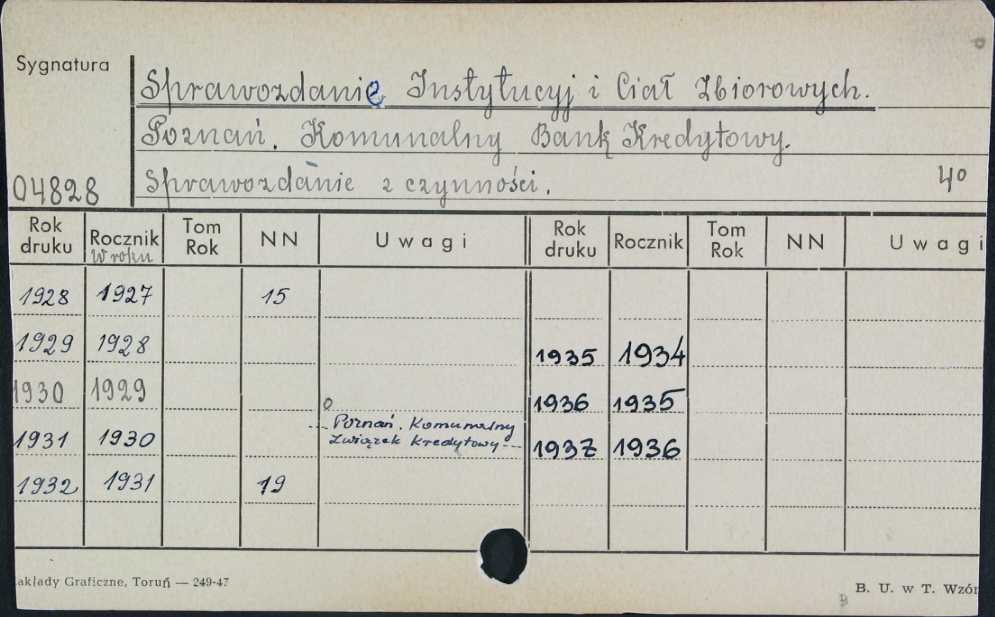 Sygnatura
Sprawozdanie Instytucyj i Ciał Zbiorowych.
Poznań. Komunalny Bank Kredytowy.
04828 Sprawozdanie z czynności. 4o
Rok druku Rocznik W roku Tom Rok NN Uwagi Rok druku Rocznik Tom Rok NN Uwagi
1928 1927 15
1929 1928 1935 1934
1930 1929 1936 1935
1931 1930 Poznań. Komunalny Związek Kredytowy 1937 1936
1932 1931 19
akłady Graficzne, Toruń — 249-47
B. U. w T. Wzór